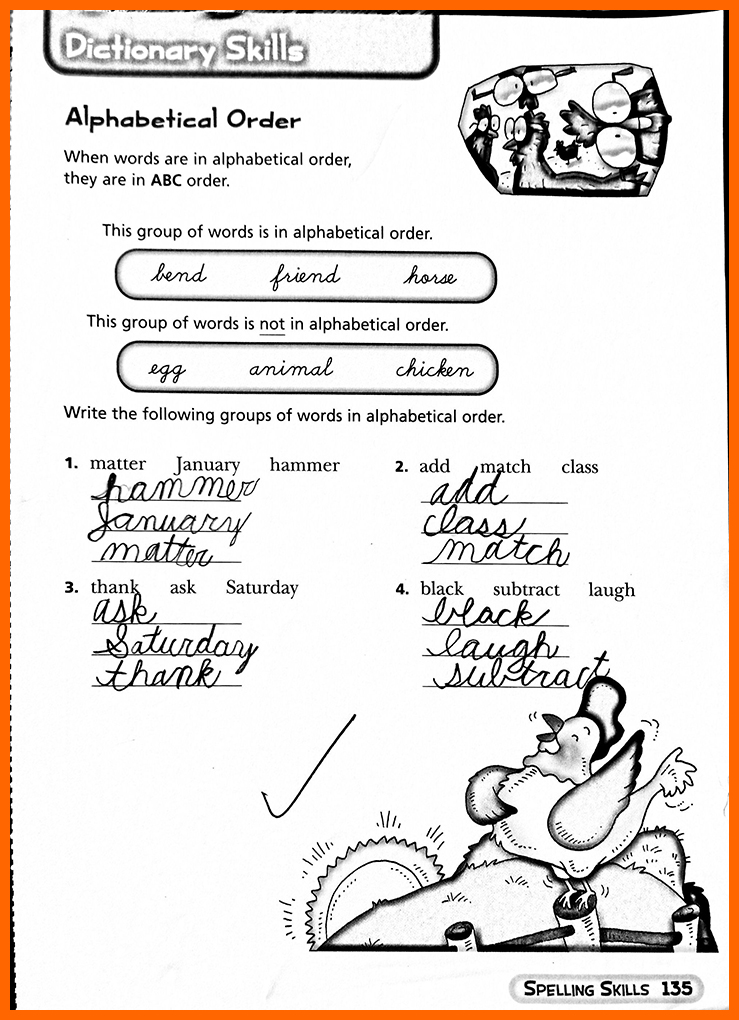 Dictionary Skills
Alphabetical Order
When words are in alphabetical order,
they are in ABC order.
This group of words is in alphabetical order.
bend friend horse
This group of words is not in alphabetical order.
egg animal chicken
Write the following groups of words in alphabetical order.
1. matter January hammer
hammer
January
matter
2. add match class
add
class
match
3. thank ask Saturday
ask
Saturday
thank
4. black subtract laugh
black
laugh
subtract
SPELLING SKILLS 135